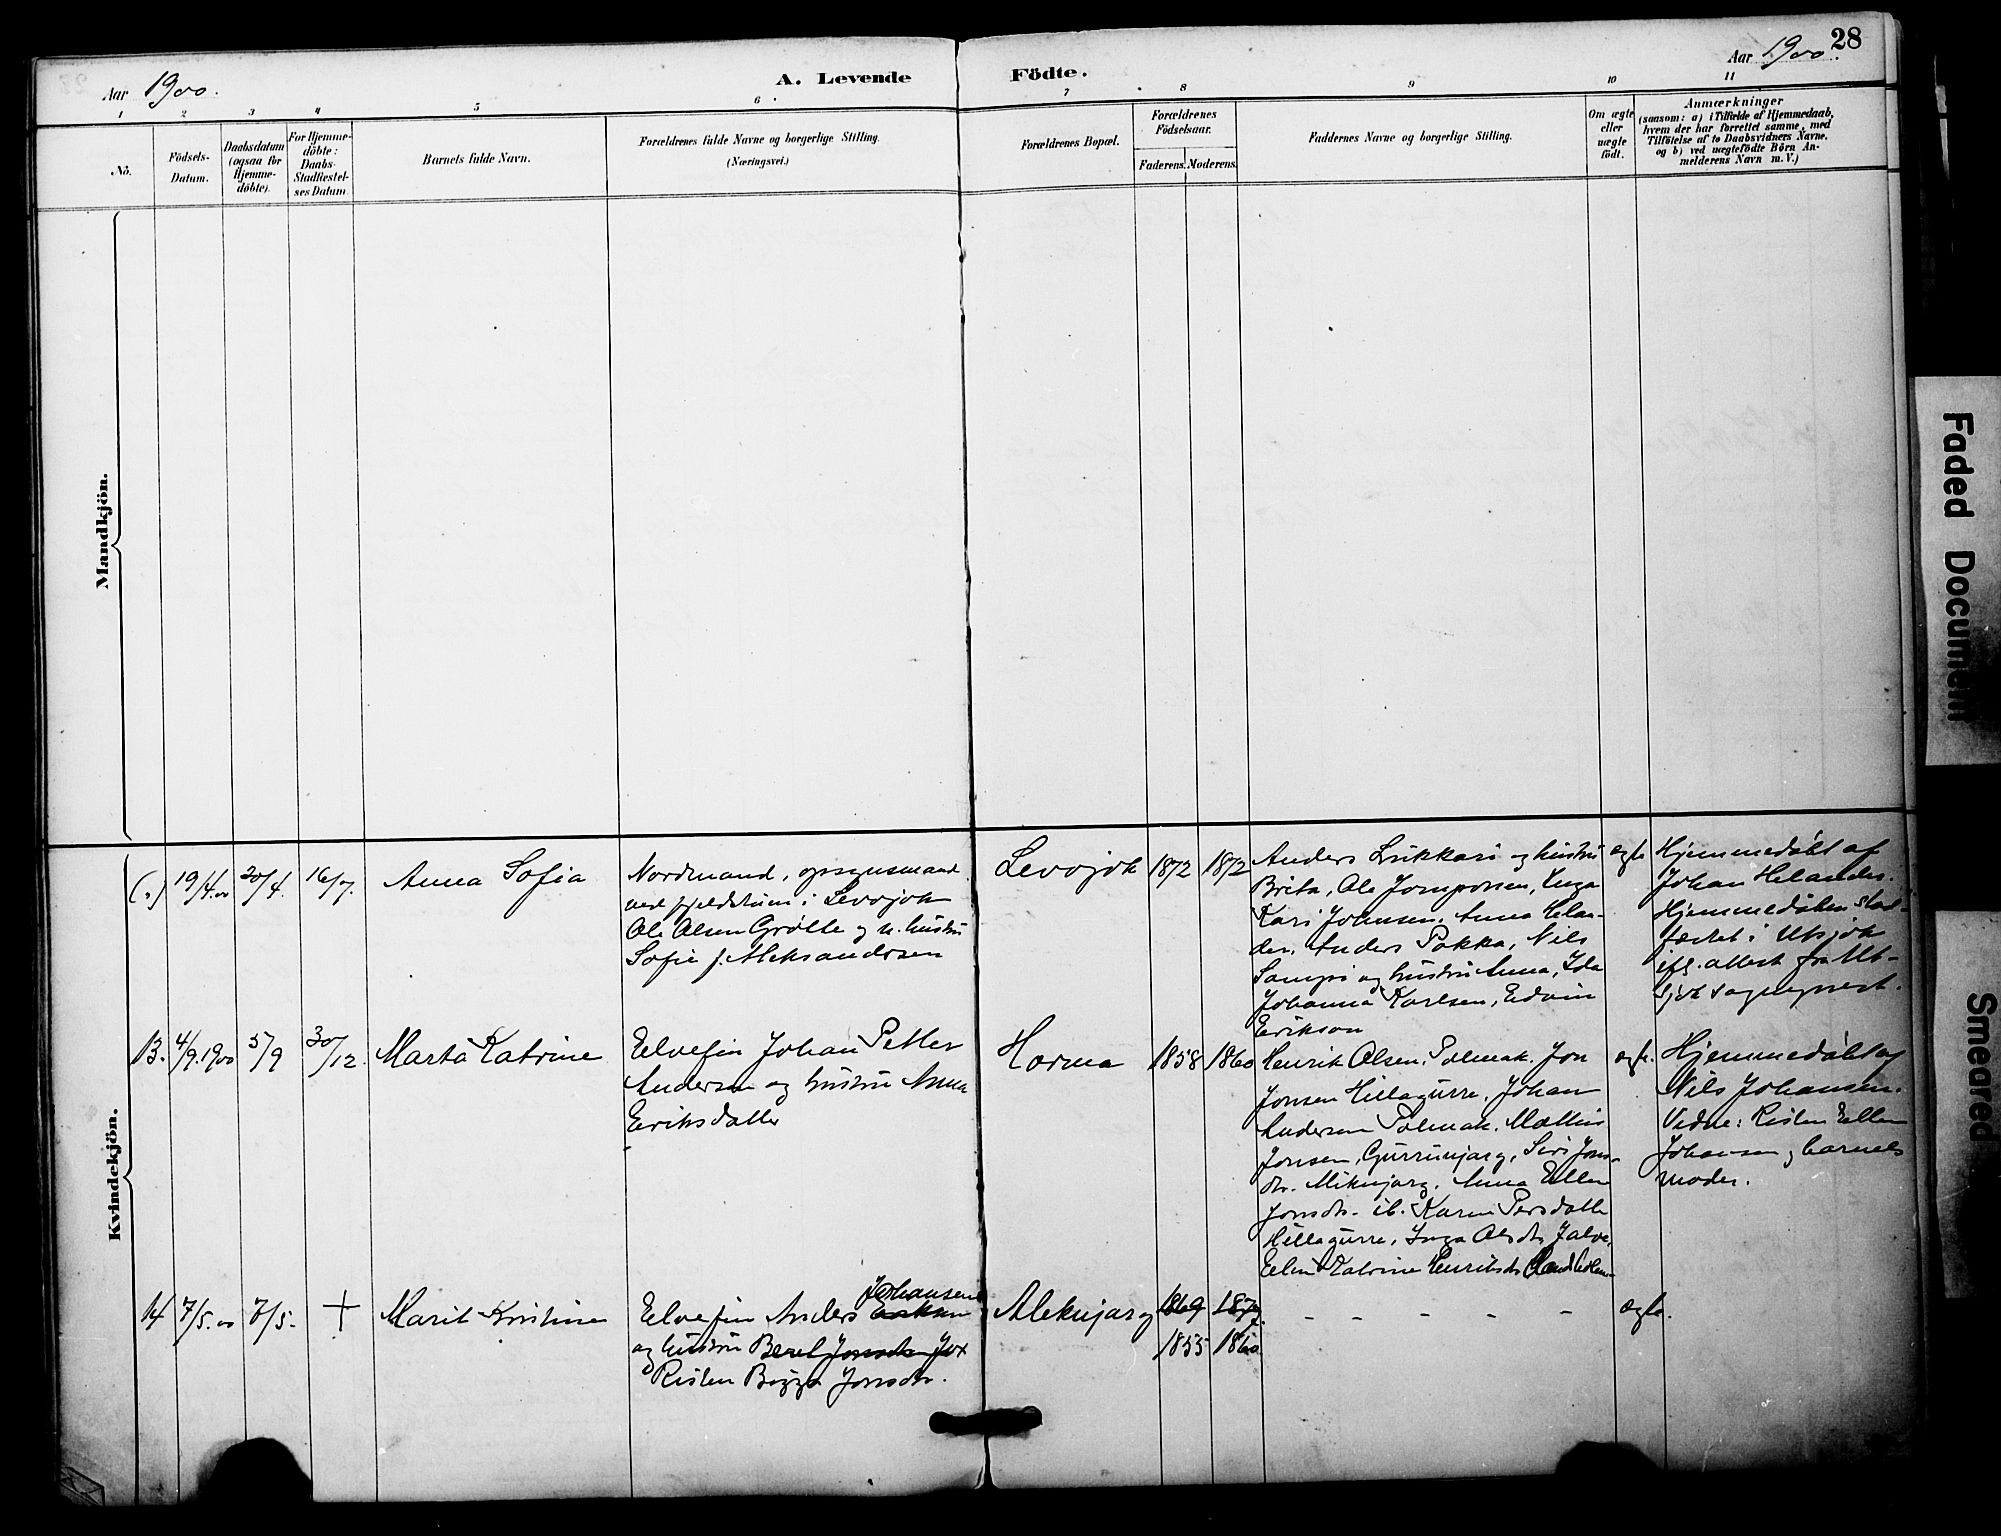 28
Aar 1900.
A. Levende Födte.
Aar 1900.
1 2 3 4 5 6 7 8 9 10 11
No.
Födsels-
Datum.
Daabsdatum
(ogsaa for
Hjemme-
döbte).
For Hjemme-
döbte:
Daabs-
Stadfæstel-
ses Datum.
Barnets fulde Navn.
Forældrenes fulde Navne og borgerlige Stilling.
(Næringsvei.)
Forældrenes Bopæl.
Forældrenes
Födselsaar.
Faderens. Moderens.
Faddernes Navne og borgerlige Stilling.
Om ægte
eller
uægte
födt.
Anmærkninger
(saasom: a) i Tilfælde af Hjemmedaab,
hvem der har forrettet samme, med
Tilföielse af to Daabsvidners Navne.
og b) ved uægtefödte Börn An-
melderens Navn m. V.)
Mandkjön.
Kvindekjön.
19/4.00 20/4. 16/7. Anna Sofia
Nordmand, opsynsmand
ved fjeldstuen i Levvojok
Ole Olsen Grøtte og h. hustru
Sofie f. Aleksandersen
Levvojok 1872 1872
Anders Lukkari og hustru
Brita, Ole Josmposen, Inga
Kari Johnsen, Anna Helan-
der, Anders Pokka, Nils
Sampi og hustru Anna, Ida
Johanna Karlsen, Edvin
Erikson
ægte
Hjemmedøbt af
Johan Helander.
Hjemmedåben stad-
fæstet i Utsjok
ifl. attest fra Ut-
sjok sognepræst.
13. 4/9.1900 5/9 30/12. Marta Katrine
Elvefin Johan Petter
Andersen og hustru Anna
Eriksdatter
Horma 1858 1860
Henrik Olsen, Polmak. Jon
Jonsen Hillagurre, Johan
Andersen Polmak. Mathis
Jonsen, Gurrunjarg, Siri Jons-
dtr. Aliknjarg. Anna Ellen
Jonsdtr. ib. Karen Persdatter
Hillagurre, Inga Olsdtr Jalve,
Elen Katrine Henriksdtr
ægte.
Hjemmedøbt af
Nils Johansen.
Vidne: Risten Ellen
Johansen og barnets
moder.
14 7/5.00 7/5. + Marit Kristine
Johansen
Elvefin Anders Eriksen
og hustru Beret Jonsdtr
Risten Bigga Jonsdtr.
Aleknjarg 1869 187
1855 1860
- - - - -
ægte.
Faded Document
Smeared